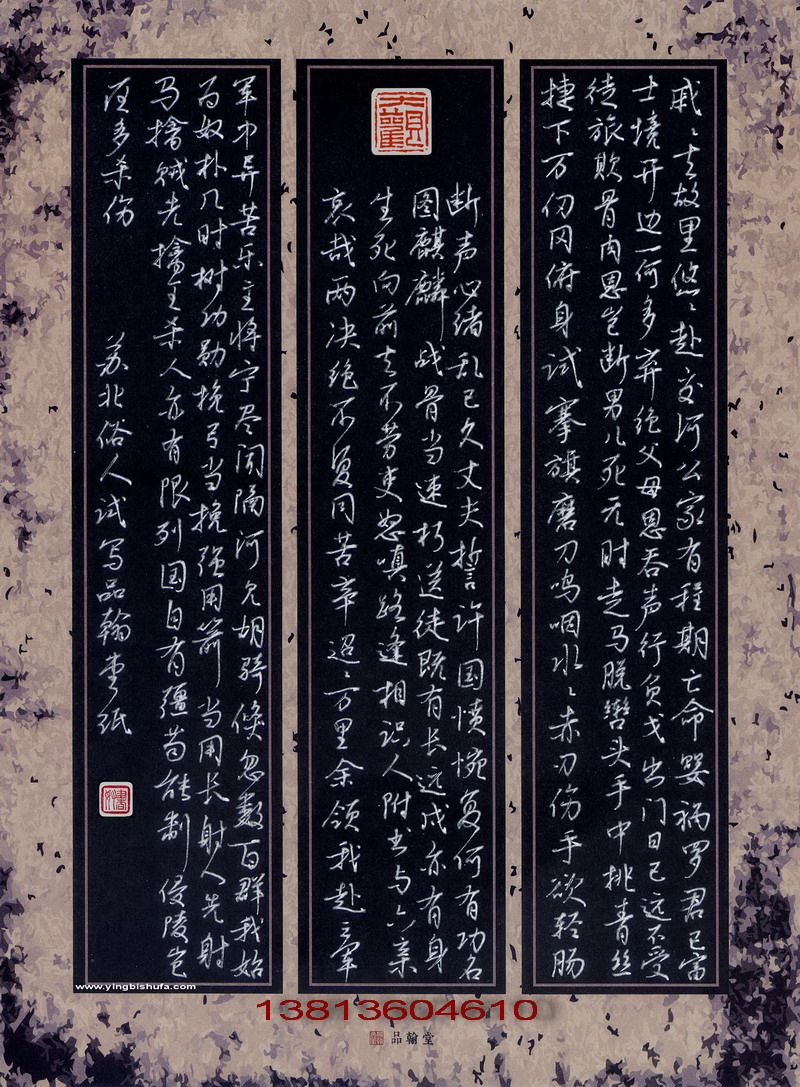 戚々去故里悠々赴交河公家有程期亡命婴祸罗君已富
士境开边一何多弃绝父母恩吞声行负戈出门日已远不受
徒旅欺骨肉恩岂断男儿死无时走马脱辔头手中挑青丝
捷下万仞冈俯身试搴旗磨刀呜咽水々赤刃伤手欲轻肠
断声心绪乱已久丈夫誓许国愤惋复何有功名
图麒麟战骨当速朽送徒既有长远戍亦有身
生死向前去不劳吏怒嗔路逢相识人附书与六亲
哀哉两决绝不复同苦辛迢々万里余领我赴三军
军中异苦乐主将宁尽闻隔河见胡骑倏忽数百群我始
为奴朴几时树功勋挽弓当挽强用箭当用长射人先射
马擒贼先擒王杀人亦有限列国自有疆苟能制侵陵岂
在多杀伤
苏北俗人试写品翰堂纸
www.yingbishufa.com
13813604610
品翰堂